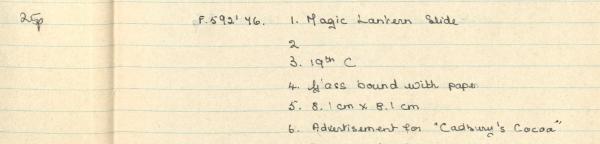 25p F.592'46. 1. Magic Lantern Slide
2
3. 19th C
4. Glass bound with paper
5. 8.1cm x 8.1cm
6. Advertisement for "Cadbury's Cocoa"